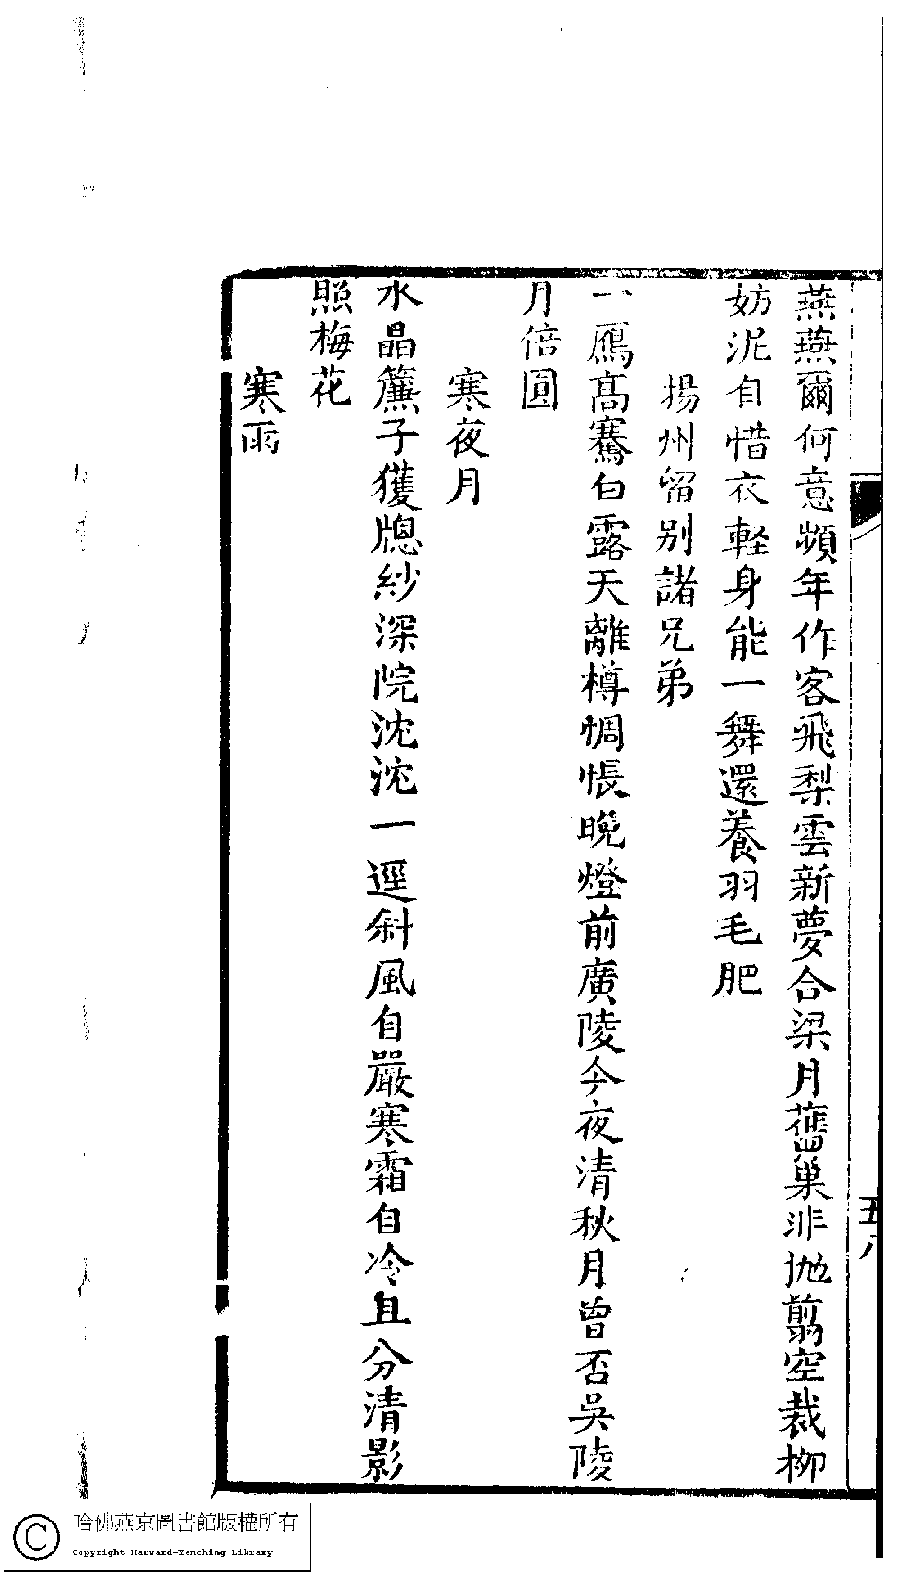 燕燕爾何意頻年作客飛梨雲新夢合梁月舊巢非拋翦空裁柳
妨泥自惜衣軽身能一舞還養羽毛肥
揚州留别諸兄弟
一鴈髙騫白露天離樽惆悵晚燈前廣陵今夜清秋月曾否吳陵
月倍圓
寒夜月
水晶簾子獲牕紗深院沈沈一逕斜風自嚴寒霜自冷且分清影
照梅花
寒雨
五八
哈佛燕京圖書館版權所有
Copyright Harvard-Yenching Library